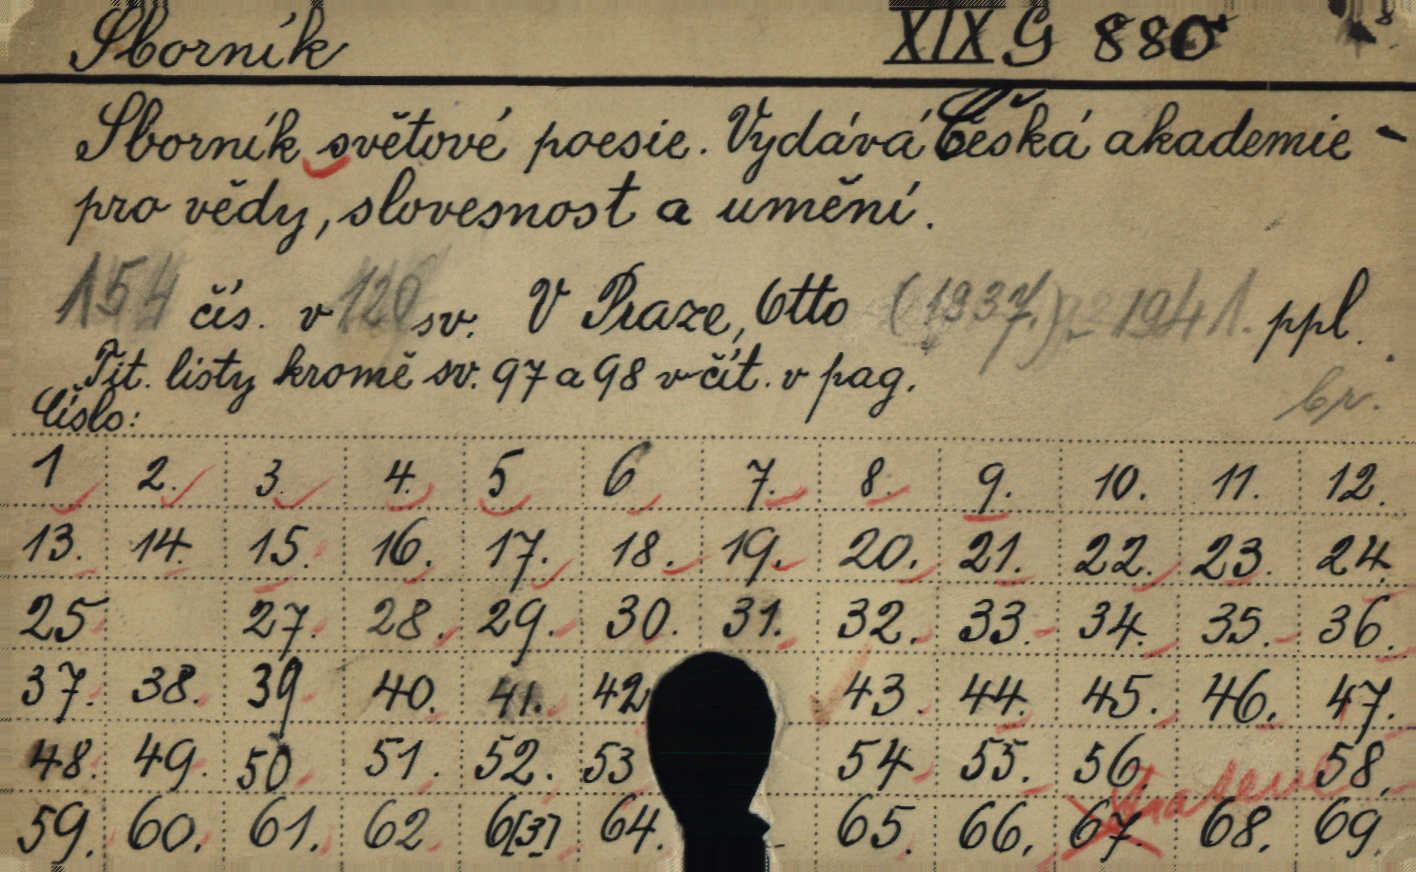 Sborník XIX G 880
Sborník světové poesie. Vydává Česká akademie -
pro vědy, slovesnost a umění.
154 čís. v 120 sv. V Praze, Otto (1937.) - 1941. ppl.
Tit. listy kromě sv. 97 a 98 v čít. v pag.
br.
Číslo:
1 2. 3. 4. 5 6 7. 8. 9. 10. 11. 12.
13. 14. 15. 16. 17. 18. 19. 20. 21. 22. 23. 24.
25 27. 28. 29. 30. 31. 32. 33. 34. 35. 36.
37. 38. 39 40. 41. 42 43. 44. 45. 46. 47.
48. 49. 50 51. 52. 53 54 55. 56. 58.
ztracené
59. 60. 61. 62. 6[3] 64. 65. 66. 67. 68. 69.